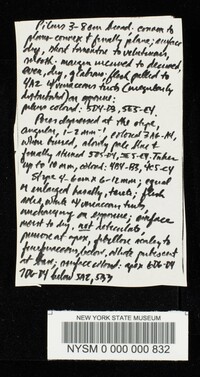 Pileus 3-8 cm broad, convex to
plano-convex & finally plane; surface
dry, short tomentose to velutinous,
smooth; margin incurved to decurved,
even, dry, glabrous; flesh pallid to
4A2 & vinaceous tints (irregularly
distributed) on exposure;
pileus colored: 5D4-D3, 5E5-E4.
Pores depressed at the stipe,
angular, 1-2 mm⁻¹, colored 3A6-A4,
when bruised, slowly pale blue &
finally stained 5D5-E4, 5E5-E4. Tubes
up to 10 mm, colored: 4A4-B3, 4C5-E4
Stipe 4-6 cm x 6-12 mm, equal
or enlarged basally, terete; flesh
solid, white & vinaceous tints
underlying on exposure; surface
moist to dry, not reticulate,
pruinose at apex, fibrillose scaly to
punctate below, white pubescent
at base; surface colored: apex 6D6-D4
7D6-D4 below 5A2, 5B3
NEW YORK STATE MUSEUM
NYSM 0 000 000 832